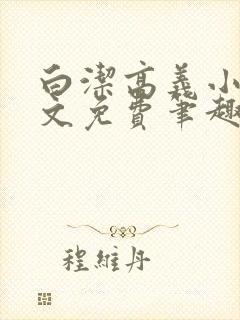 白潔高義小
文免費筆趣
程維丹